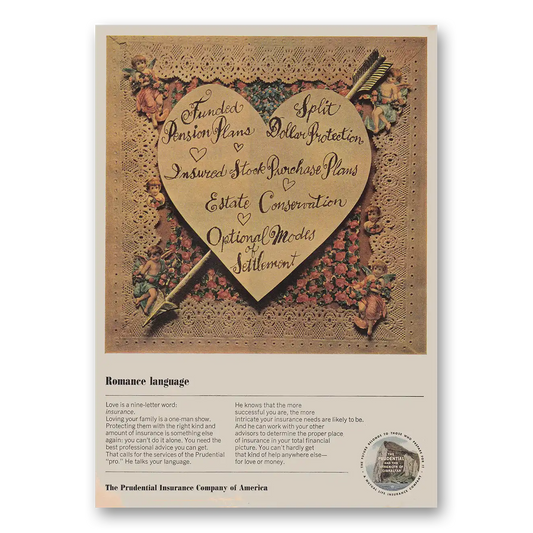 Funded Split
Pension Plans Dollar Protection
Insured Stock Purchase Plans
Estate Conservation
Optional Modes
of
Settlement
Romance language
Love is a nine-letter word:
insurance.
Loving your family is a one-man show.
Protecting them with the right kind and
amount of insurance is something else
again: you can't do it alone. You need the
best professional advice you can get.
That calls for the services of the Prudential
"pro." He talks your language.
He knows that the more
successful you are, the more
intricate your insurance needs are likely to be.
And he can work with your other
advisors to determine the proper place
of insurance in your total financial
picture. You can't hardly get
that kind of help anywhere else—
for love or money.
THE FUTURE BELONGS TO THOSE WHO PREPARE FOR IT
THE
PRUDENTIAL
HAS THE
STRENGTH OF
GIBRALTAR
A MUTUAL LIFE INSURANCE COMPANY
The Prudential Insurance Company of America